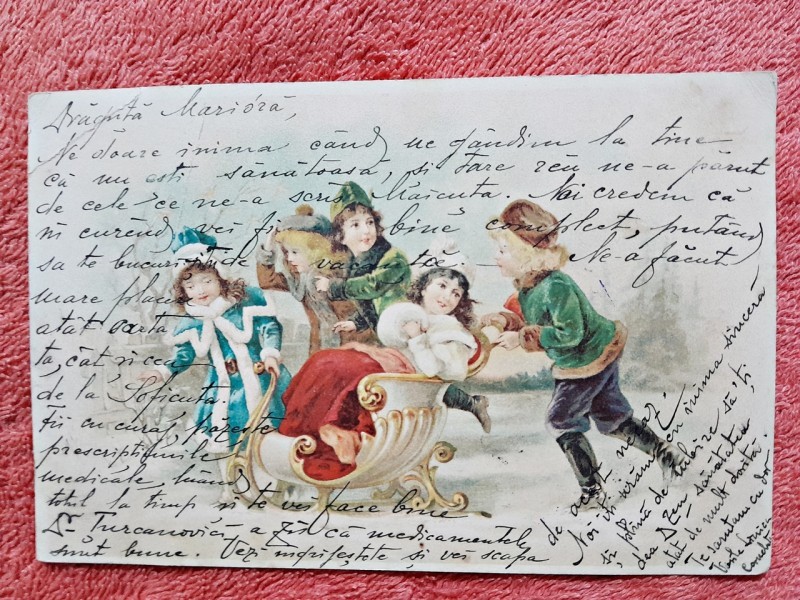 Drăguță Marióră,
Ne doare inima când ne gândim la tine
că nu ești sănătoasă, și tare rău ne-a părut
de cele ce ne-a scris Măicuța. Noi credem că
în curénd vei fi bine complect, putând
să te bucuri de vacanță. — Ne-a făcut
mare plăcere
atât carta
ta, cât și cea
de la Soficuța.
Fii cu curaj, păzește
prescripțiunile
medicale, luând
totul la timp și te vei face bine
Dr Turcanovici a zis că medicamentele
sunt bune. Vezi îngrijește și vei scapa
de acest necaz.
Noi îți urăm cu inima sinceră
și plină de iubire să'ți
dea Dzeu sănătatea
atât de mult dorită.
Te sărutăm cu dor